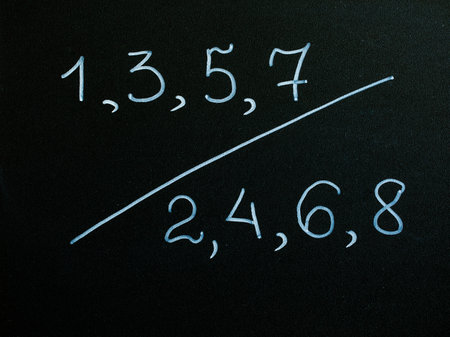 1,3,5,7
2,4,6,8